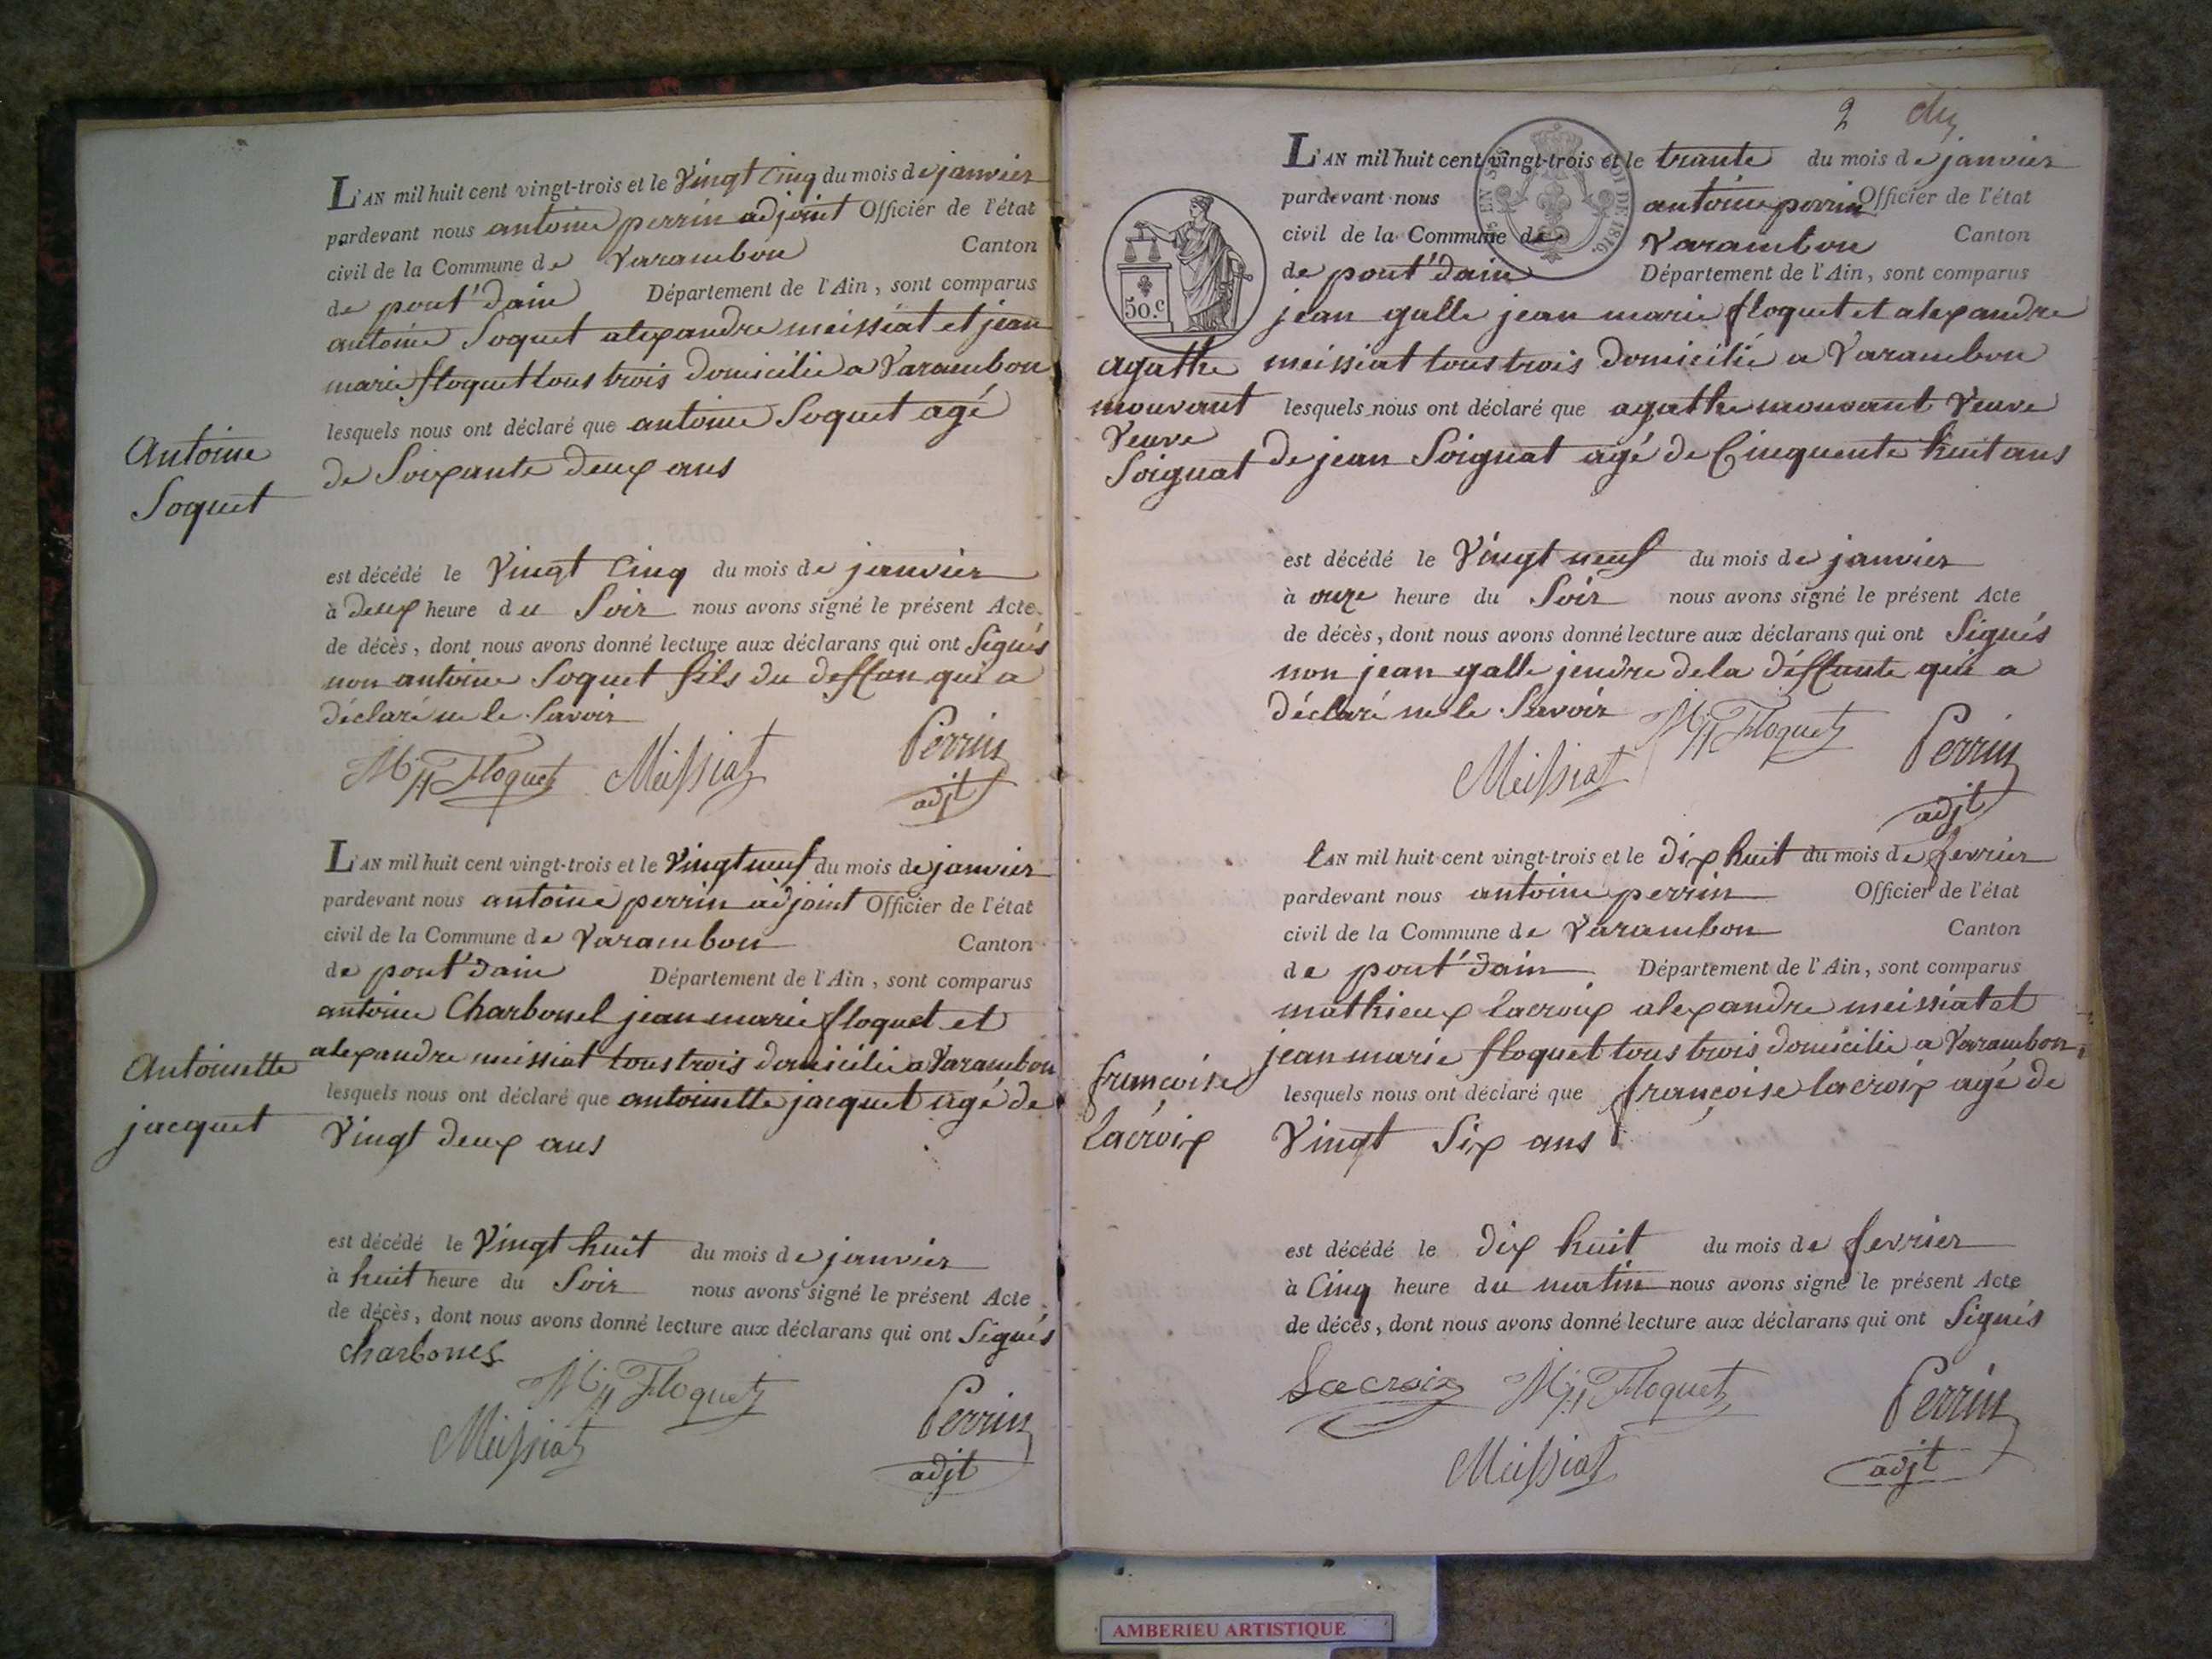 L'AN mil huit cent vingt-trois et le Vingt Cinq du mois de janvier
pardevant nous antoine perrin adjoint Officier de l'état
civil de la Commune de Varambon Canton
de pont'dain Département de l'Ain, sont comparus
antoine Soquet alexandre meissiat et jean
marie floquet tous trois domicilié a Varambon
lesquels nous ont déclaré que antoine Soquet agé
de Soixante deux ans
Antoine
Soquet
est décédé le Vingt Cinq du mois de janvier
à deux heure du Soir nous avons signé le présent Acte
de décès, dont nous avons donné lecture aux déclarans qui ont Signés
non antoine Soquet fils du deffun qui a
déclaré ne le Savoir
Floquet Meissiat Perrin
adjt
L'AN mil huit cent vingt-trois et le Vingt neuf du mois de janvier
pardevant nous antoine perrin adjoint Officier de l'état
civil de la Commune de Varambon Canton
de pont'dain Département de l'Ain, sont comparus
antoine Charbonel jean marie floquet et
alexandre meissiat tous trois domicilié a Varambon
lesquels nous ont déclaré que antoinette jacquet agé de
Vingt deux ans
Antoinette
jacquet
est décédé le Vingt huit du mois de janvier
à huit heure du Soir nous avons signé le présent Acte
de décès, dont nous avons donné lecture aux déclarans qui ont Signés
Charbonel
Floquet
Meissiat Perrin
adjt
2
L'AN mil huit cent vingt-trois et le trante du mois de janvier
pardevant nous antoine perrin Officier de l'état
civil de la Commune de Varambon Canton
de pont'dain Département de l'Ain, sont comparus
50.c
jean galle jean marie floquet et alexandre
meissiat tous trois domicilié a Varambon
lesquels nous ont déclaré que agathe mouvant Veuve
de jean Soignat agé de Cinquente huit ans
agathe
mouvant
Veuve
Soignat
est décédé le Vingt neuf du mois de janvier
à onze heure du Soir nous avons signé le présent Acte
de décès, dont nous avons donné lecture aux déclarans qui ont Signés
non jean galle jendre de la déffunte qui a
déclaré ne le Savoir
Floquet
Meissiat Perrin
adjt
L'AN mil huit cent vingt-trois et le dix huit du mois de fevrier
pardevant nous antoine perrin Officier de l'état
civil de la Commune de Varambon Canton
de pont'dain Département de l'Ain, sont comparus
mathieux lacroix alexandre meissiat et
jean marie floquet tous trois domicilié a Varambon
lesquels nous ont déclaré que françoise lacroix agé de
Vingt Six ans
françoise
lacroix
est décédé le dix huit du mois de fevrier
à Cinq heure du matin nous avons signé le présent Acte
de décès, dont nous avons donné lecture aux déclarans qui ont Signés
Lacroix Floquet Perrin
Meissiat adjt
AMBERIEU ARTISTIQUE